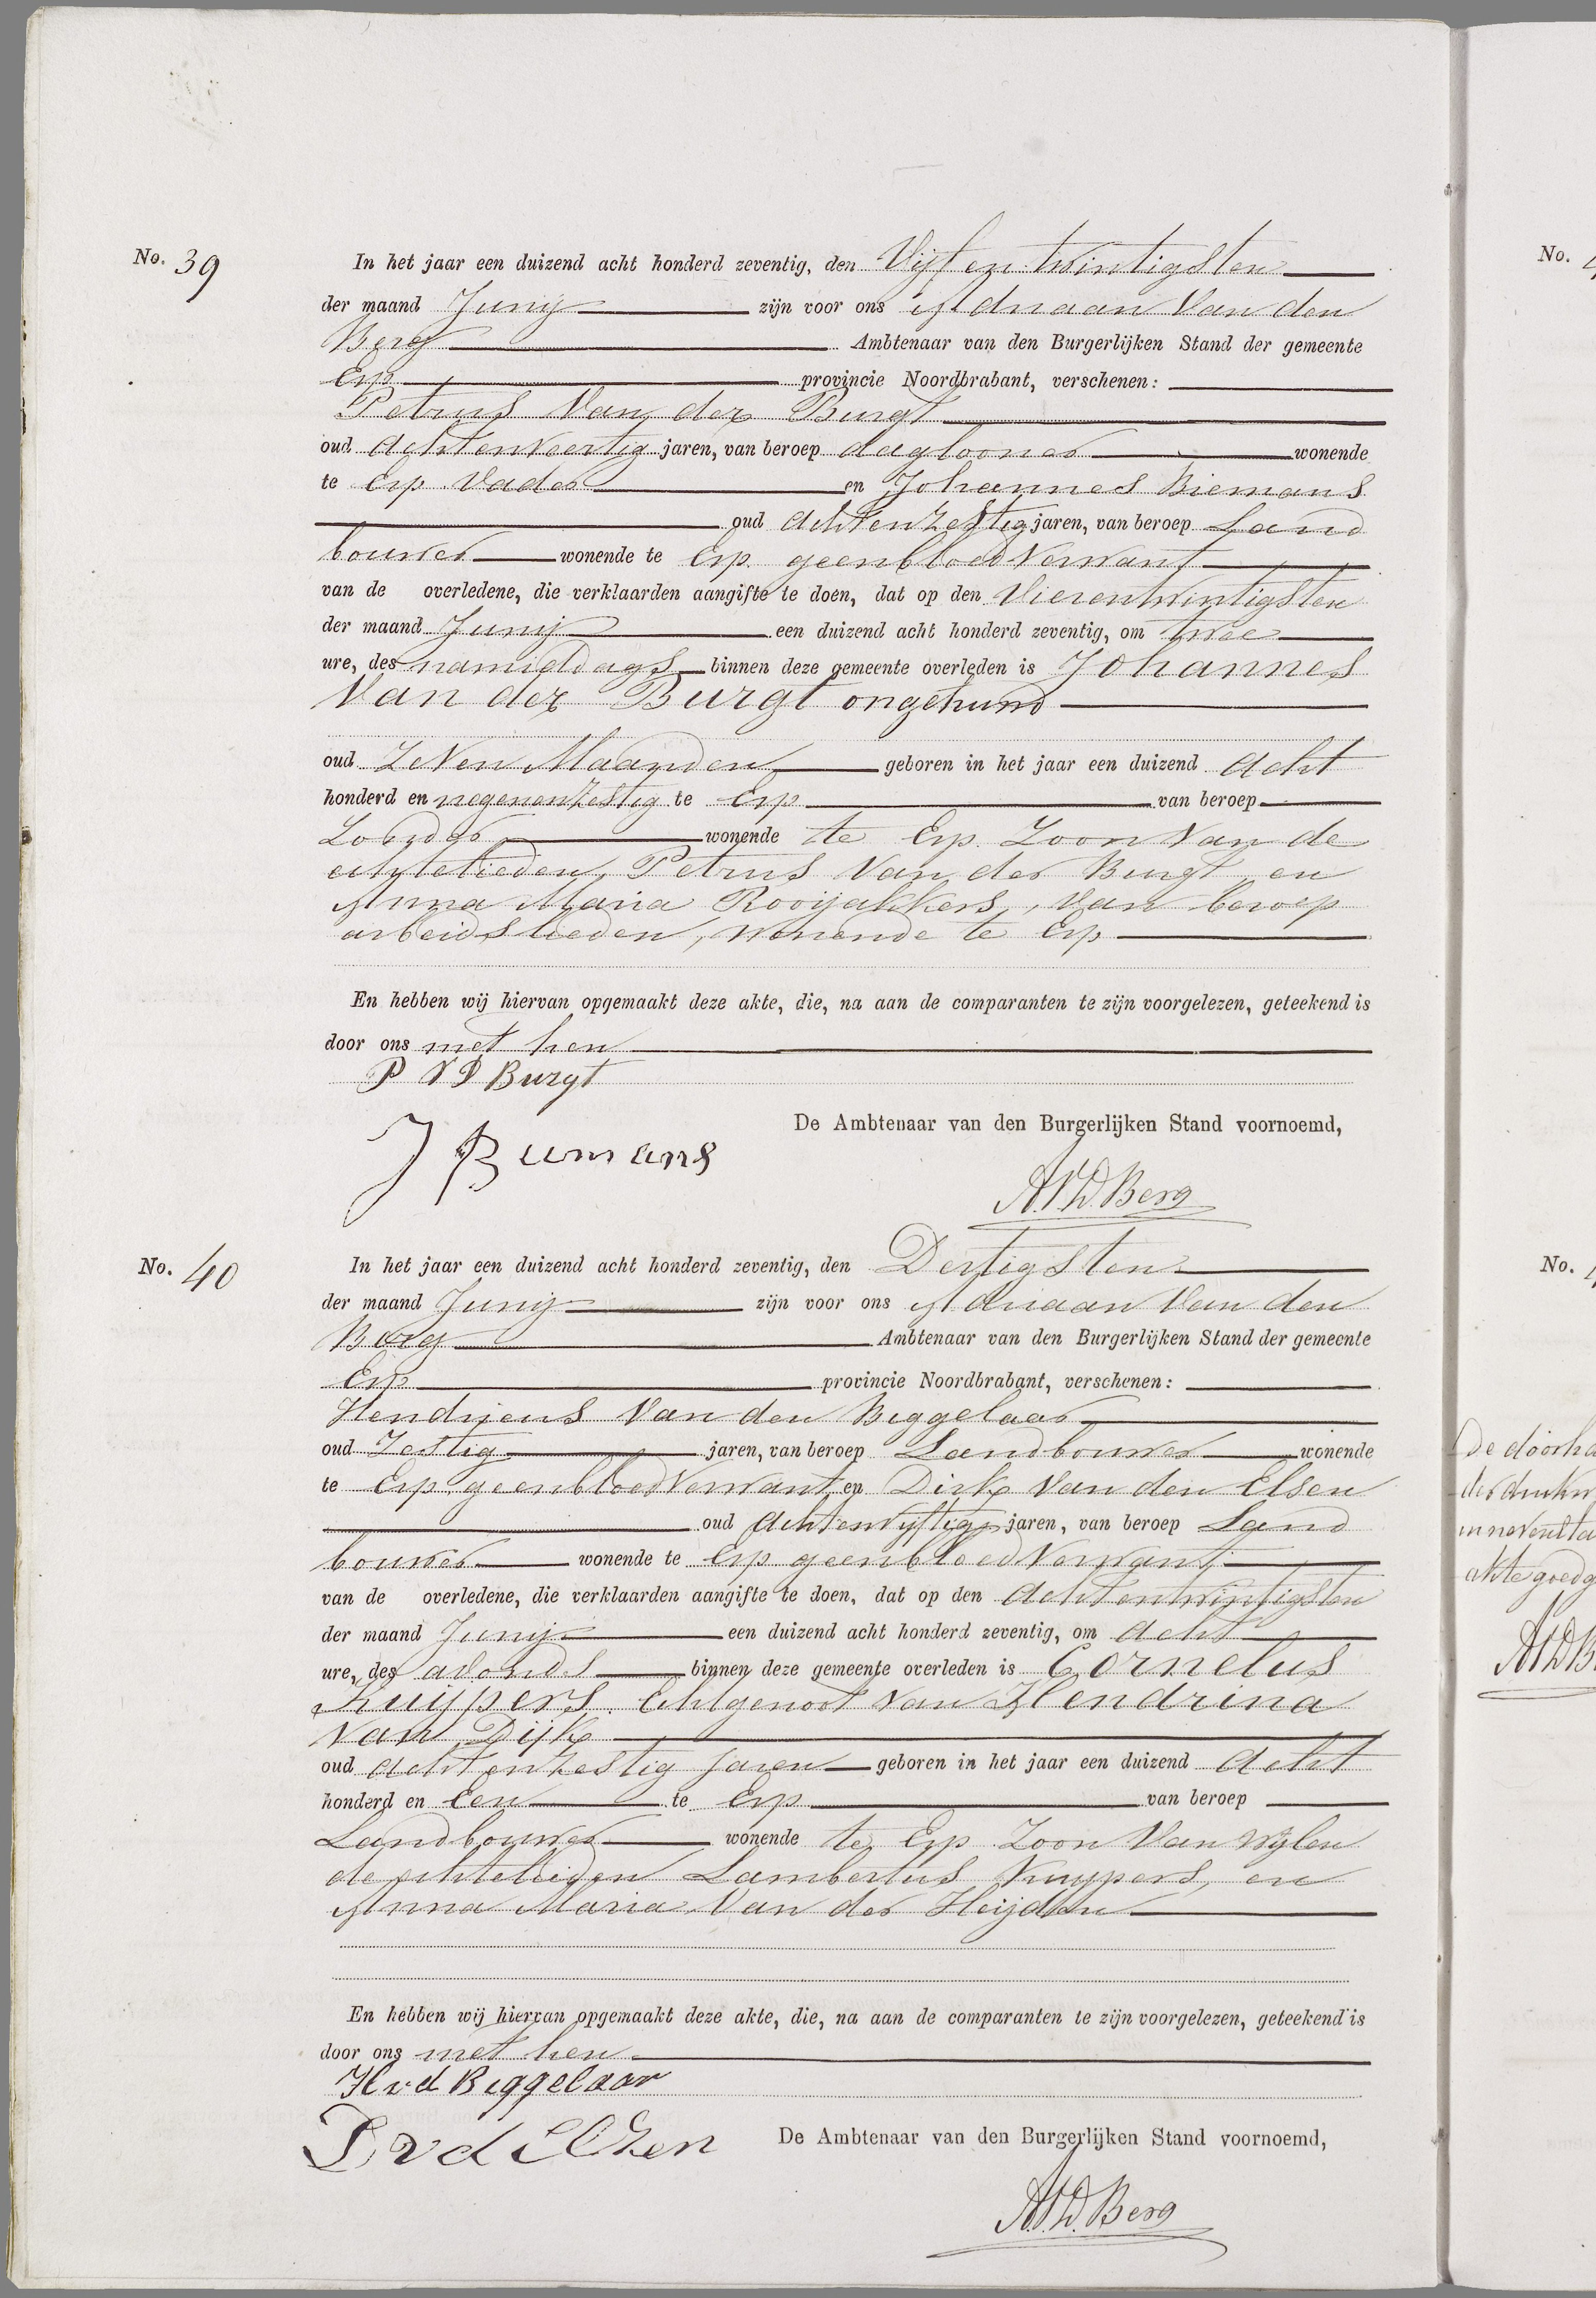 No. 39
In het jaar een duizend acht honderd zeventig, den Vijf en twintigsten
der maand Junij zijn voor ons Adriaan Van den
Berg Ambtenaar van den Burgerlijken Stand der gemeente
Erp provincie Noordbrabant, verschenen:
Petrus Van der Burgt
oud achtenveertig jaren, van beroep daglooner wonende
te Erp Vader en Johannes Biemans
oud achtenzestig jaren, van beroep Land
bouwer wonende te Erp geenbloedverwant
van de overledene, die verklaarden aangifte te doen, dat op den Vierentwintigsten
der maand Junij een duizend acht honderd zeventig, om twee
ure, des namiddags binnen deze gemeente overleden is Johannes
Van der Burgt ongehuwd
oud Zeven Maanden geboren in het jaar een duizend acht
honderd en negenenzestig te Erp van beroep
zonder wonende te Erp Zoon Van de
echtelieden, Petrus Van der Burgt, en
Anna Maria Rooijakkers, Van beroep
arbeidslieden, wonende te Erp
En hebben wij hiervan opgemaakt deze akte, die, na aan de comparanten te zijn voorgelezen, geteekend is
door ons met hen
P V D Burgt
De Ambtenaar van den Burgerlijken Stand voornoemd,
J Biemans
A.V.D. Berg
No. 40
In het jaar een duizend acht honderd zeventig, den Dertigsten
der maand Junij zijn voor ons Adriaan Van den
Berg Ambtenaar van den Burgerlijken Stand der gemeente
Erp provincie Noordbrabant, verschenen:
Hendricus Van den Biggelaar
oud Zestig jaren, van beroep Landbouwer wonende
te Erp geenbloedverwant, en Dirk Van den Elsen
oud achtenvijftig jaren, van beroep Land
bouwer wonende te Erp geenbloedverwant
van de overledene, die verklaarden aangifte te doen, dat op den achtentwintigsten
der maand Junij een duizend acht honderd zeventig, om acht
ure, des avonds binnen deze gemeente overleden is Cornelus
Kuijpers Echtgenoot Van Hendrina
Van Dijk
oud acht en zestig jaren geboren in het jaar een duizend acht
honderd en Een te Erp van beroep
Landbouwer wonende te Erp Zoon Van Wijlen
de echtelieden Lambertus Kuypers, en
Anna Maria Van der Heijden
En hebben wij hiervan opgemaakt deze akte, die, na aan de comparanten te zijn voorgelezen, geteekend is
door ons met hen
H v d Biggelaar
D v d Elzen
De Ambtenaar van den Burgerlijken Stand voornoemd,
A.V.D. Berg
No.
No.
De doorha
akte goedg
AVDB